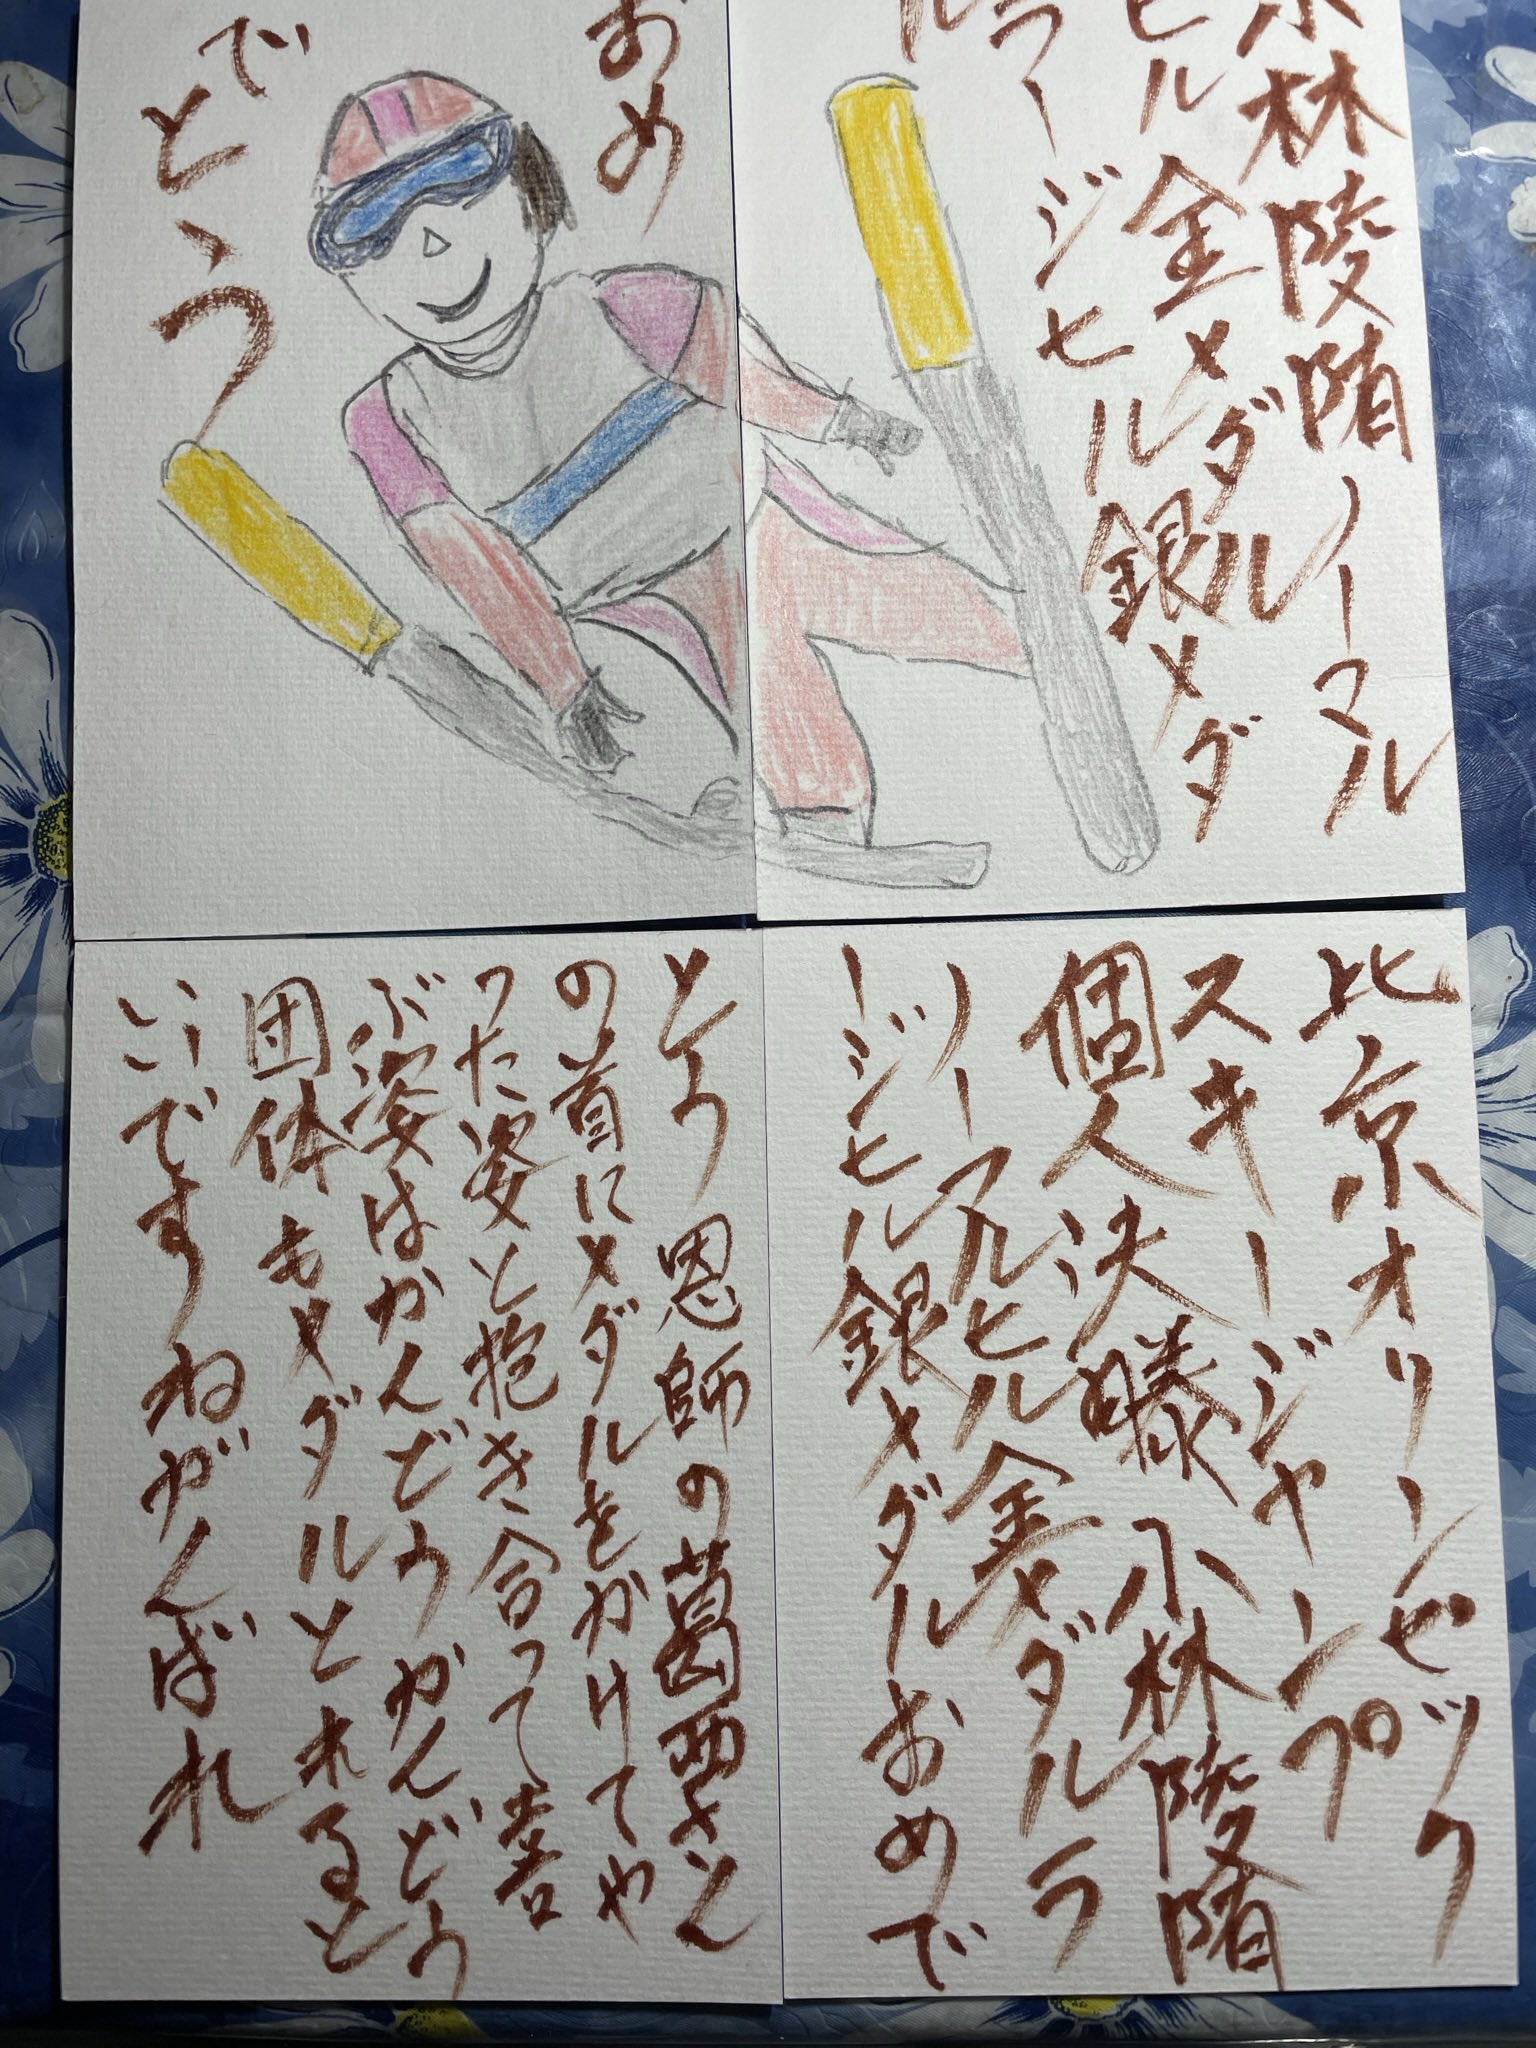 小林陵陏ノーマル
ヒル金メダル
ラージヒル銀メダ
ル
おめ
でとう
北京オリンピック
スキージャンプ
個人決勝小林陵陏
ノーマルヒル金メダルラ
ージヒル銀メダルおめで
とう恩師の葛西さん
の首にメダルをかけてや
った姿と抱き合って喜
ぶ姿はかんどうかんどう
団体もメダルとれると
いいですねがんばれ